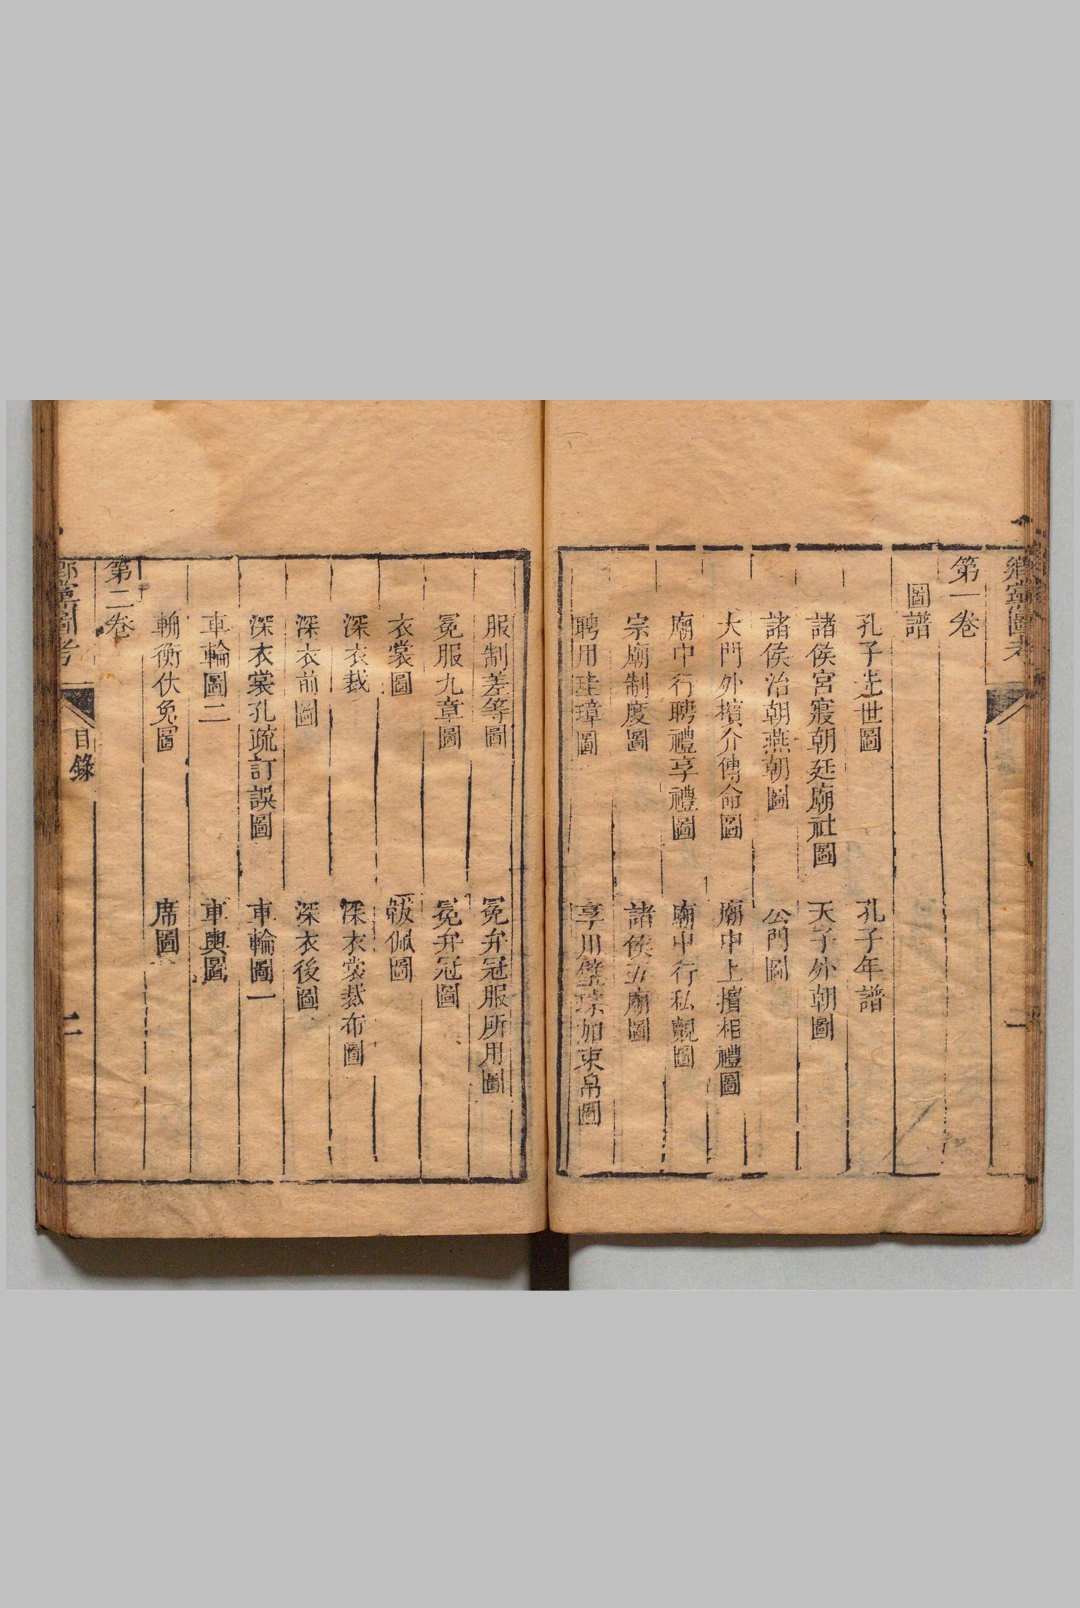 鄉黨圖考
第一卷
圖譜
孔子先世圖　孔子年譜
諸侯宮寢朝廷廟社圖　天子外朝圖
諸侯治朝燕朝圖　公門圖
大門外擯介傳命圖　廟中上擯相禮圖
廟中行聘禮享禮圖　廟中行私覿圖
宗廟制度圖　諸侯五廟圖
聘用圭璋圖　享用璧琮加束帛圖
服制差等圖　冕弁冠服所用圖
冕服九章圖　冕弁冠圖
衣裳圖　韍佩圖
深衣裁　深衣裳裁布圖
深衣前圖　深衣後圖
深衣裳孔疏訂誤圖　車輪圖一
車輪圖二　車輿圖
輈衡伏兔圖　席圖
第二卷
鄉黨圖考　目錄　二